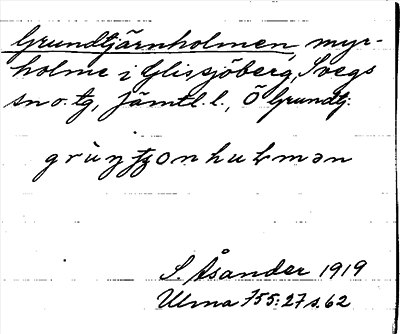 Grundtjärnholmen, myr-
holme i Glissjöberg, Svegs
sn o. tg, Jämtl. l., Ö Grundtj.
S. Åsander 1919
Ulma 155:27 s. 62